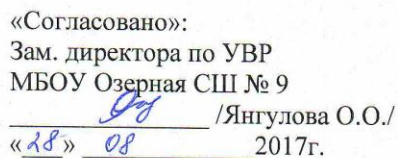 «Согласовано»:
Зам. директора по УВР
МБОУ Озерная СШ № 9
____________ /Янгулова О.О./
«28» 08 2017г.